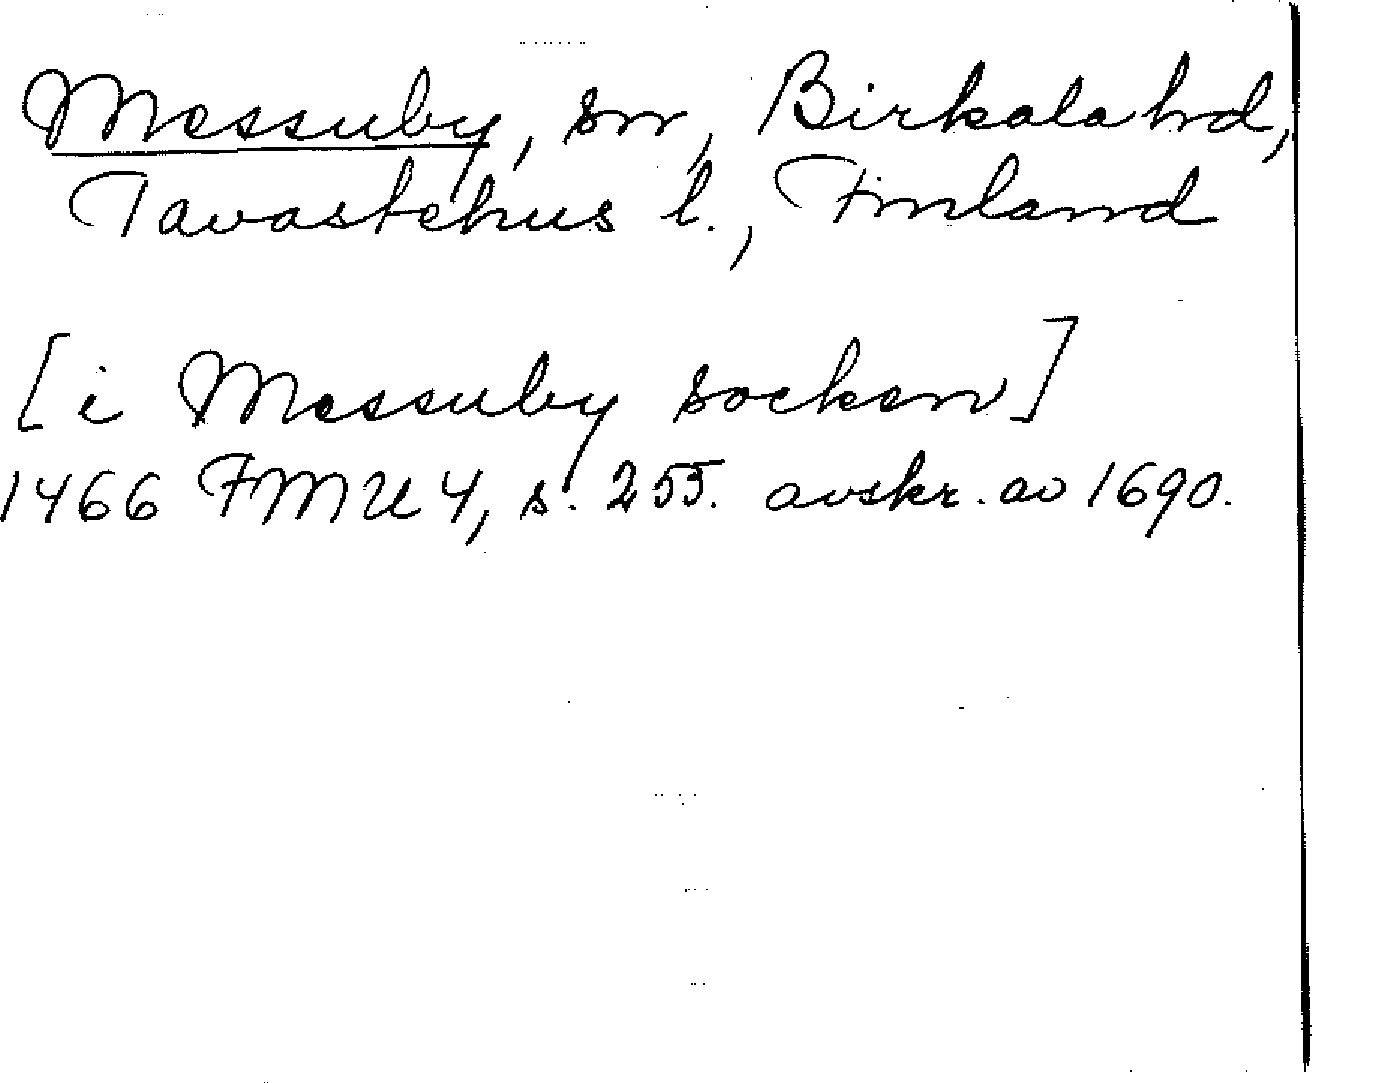 Messuby, sn, Birkala hd,
Tavastehus l., Finland
[i Messuby socken]
1466 FMU 4, s. 255. avskr. av 1690.